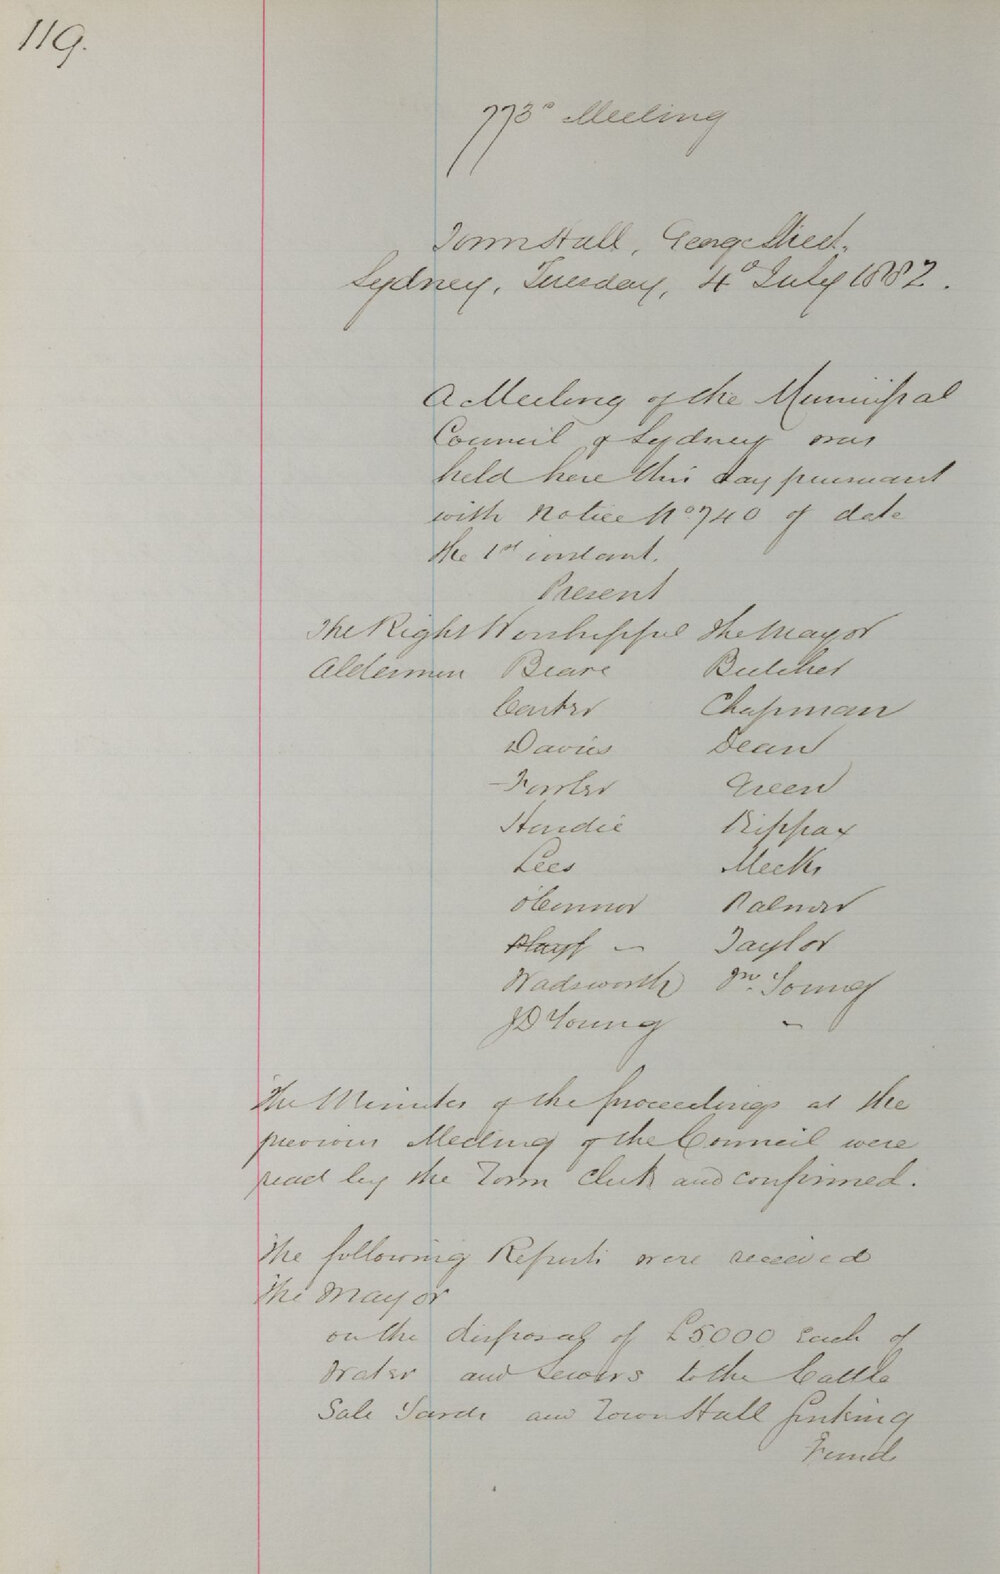 119.
773d Meeting
Town Hall, George Street,
Sydney, Tuesday, 4d July 1882.
A Meeting of the Municipal
Council of Sydney was
held here this day pursuant
with Notice No 740 of date
the 1st instant.
Present
The Right Worshipful the Mayor
Aldermen Beare Butcher
Carter Chapman
Davies Dean
Fowler Green
Hardie Kippax
Lees Meeks
O'Connor Palmer
Playf - Taylor
Wadsworth Wm. Young
JD Young -
The Minutes of the proceedings at the
previous Meeting of the Council were
read by the Town Clerk and confirmed.
The following Reports were received
The Mayor
on the disposal of £5000 each of
Water and Sewers to the Cattle
Sale Yards and Town Hall Sinking
Fund